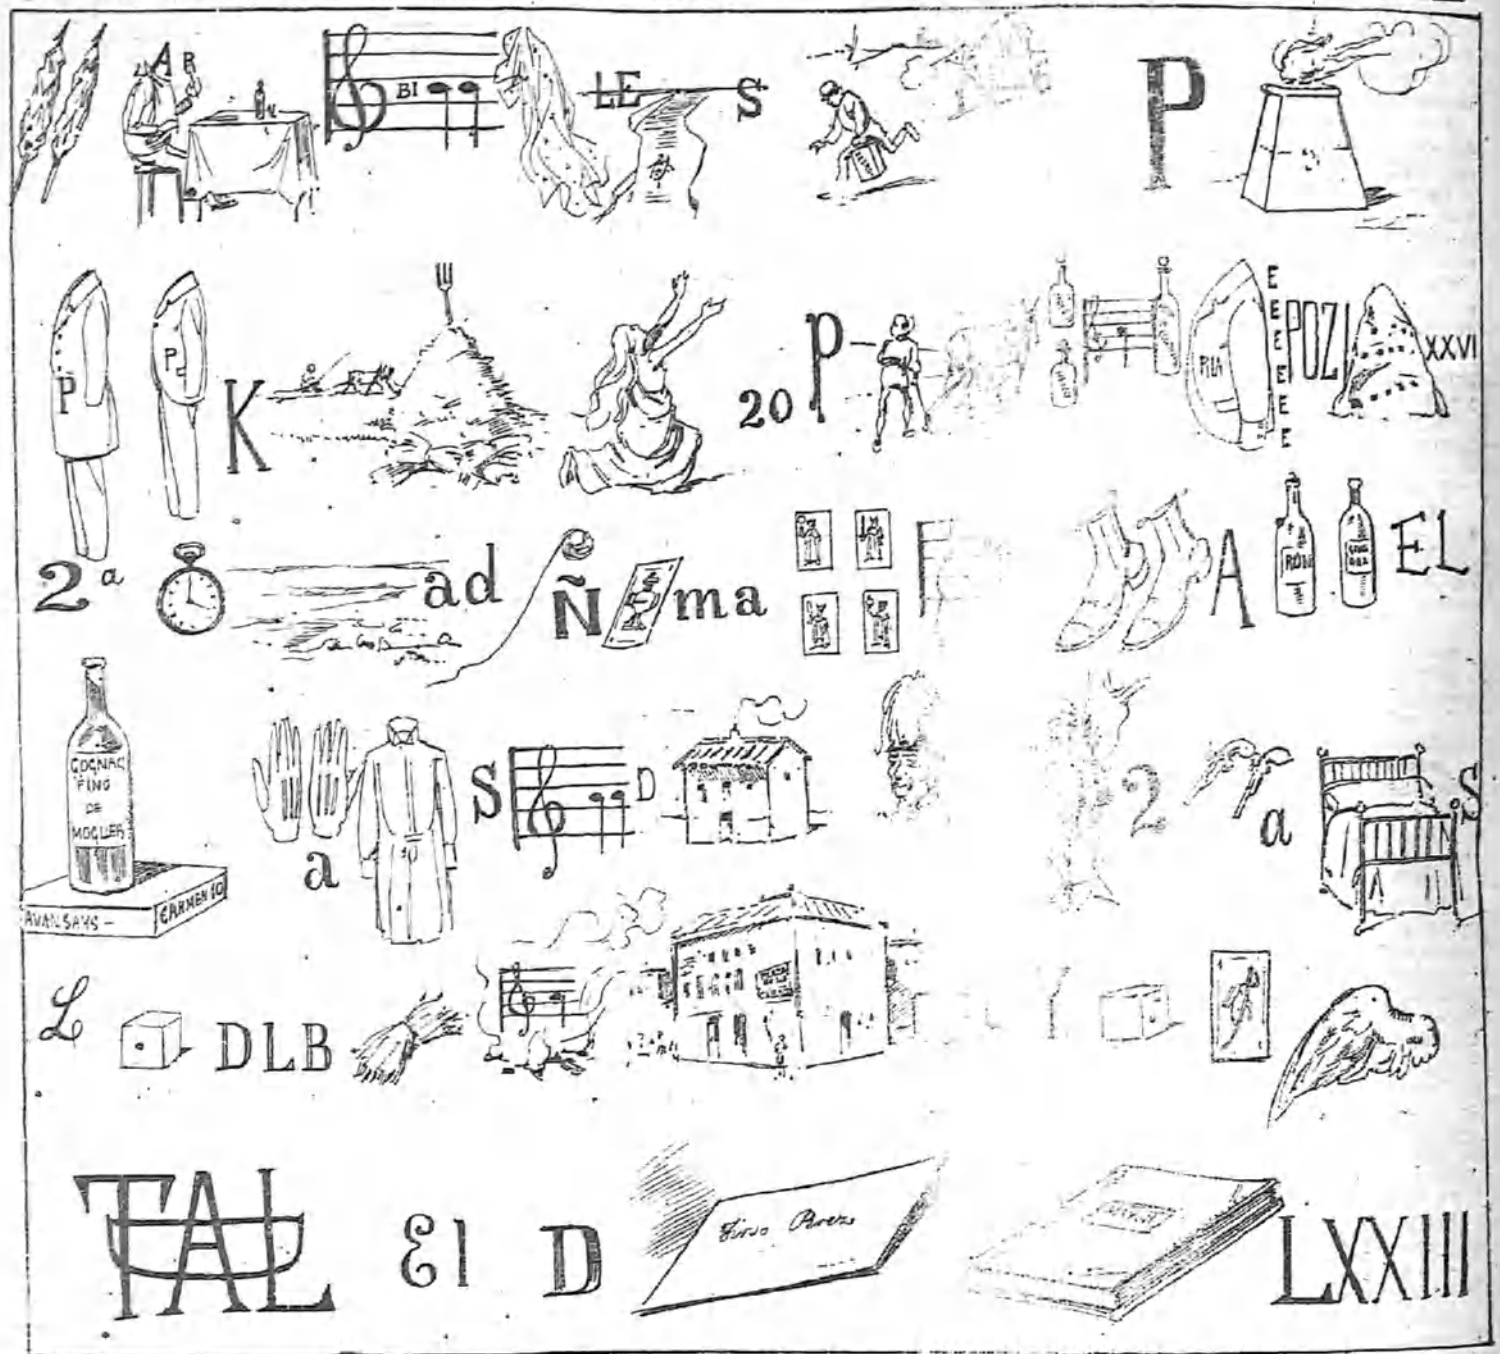 A R BI LE S P
P P K 20 P EEEEEE POZI XXVI
2ª ad Ñ ma F A RON EL
COGNAC
FINO
DE
MOGUER
CARMEN 10
a S D 2 a S
L DLB
TAL El D Tirso Perez LXXIII